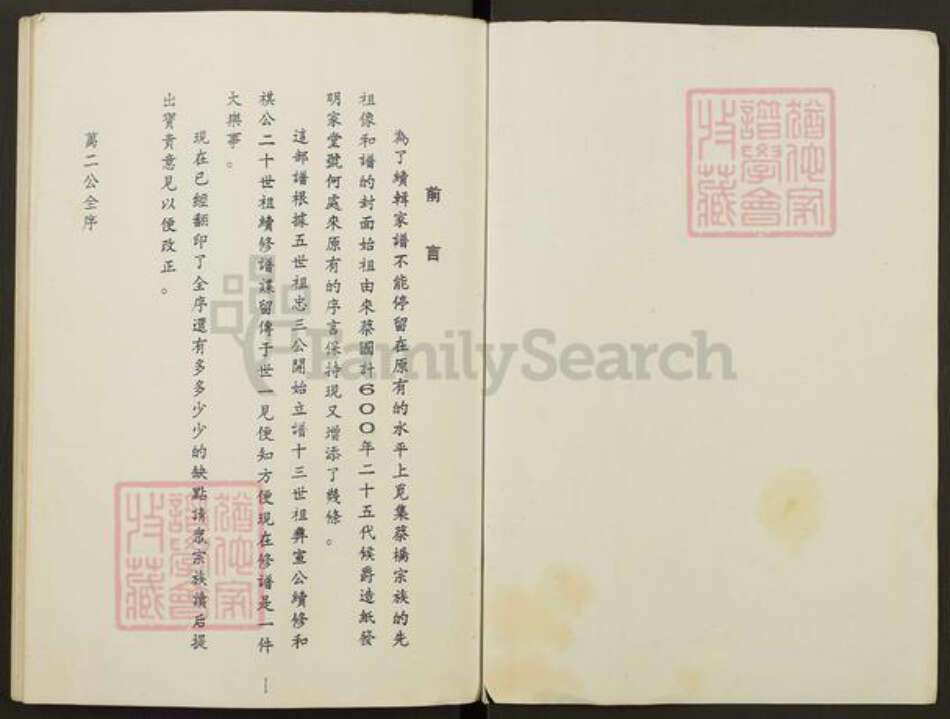 前言
為了續輯家譜不能停留在原有的水平上覓集蔡橋宗族的先
祖像和譜的封面始祖由來蔡國計600年二十五代候爵造紙發
明家堂號何處來原有的序言保持現又增添了幾條。
這部譜根據五世祖忠三公開始立譜十三世祖彝宣公續修和
祺公二十世祖續修譜諜留傳于世一見便知方便現在修譜是一件
大樂事。
現在已經翻印了全序還有多多少少的缺點請眾宗族讀后提
出寶貴意見以便改正。
萬二公全序
1
FamilySearch
譜學會
收藏
譜學會
收藏